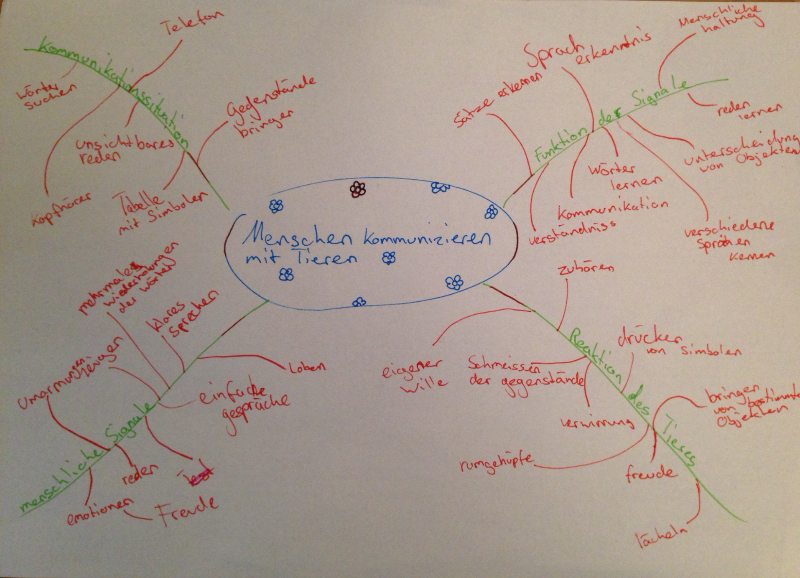 Menschen kommunizieren
mit Tieren
Kommunikationssituation
Telefon
wörter
suchen
Gegenstände
bringen
unsichtbares
reden
Kopfhörer
Tabelle
mit Simbolen
Funktion der Signale
Sprach
erkenntnis
Menschliche
haltung
Sätze erkennen
reden
lernen
unterscheidung
von Objekten
wörter
lernen
kommunikation
verständniss
verschiedene
Sprachen
kennen
menschliche Signale
mehrmales
wiederholungen
der wörter
klares
sprechen
Umarmungen
zeigen
Loben
einfache
gespräche
reden
emotionen
Freude
Reaktion des Tieres
zuhören
eigener
wille
Schmeissen
der gegenstände
drücken
von Simbolen
verwirrung
bringen
von bestimmten
Objekten
rumgehüpfe
freude
lächeln